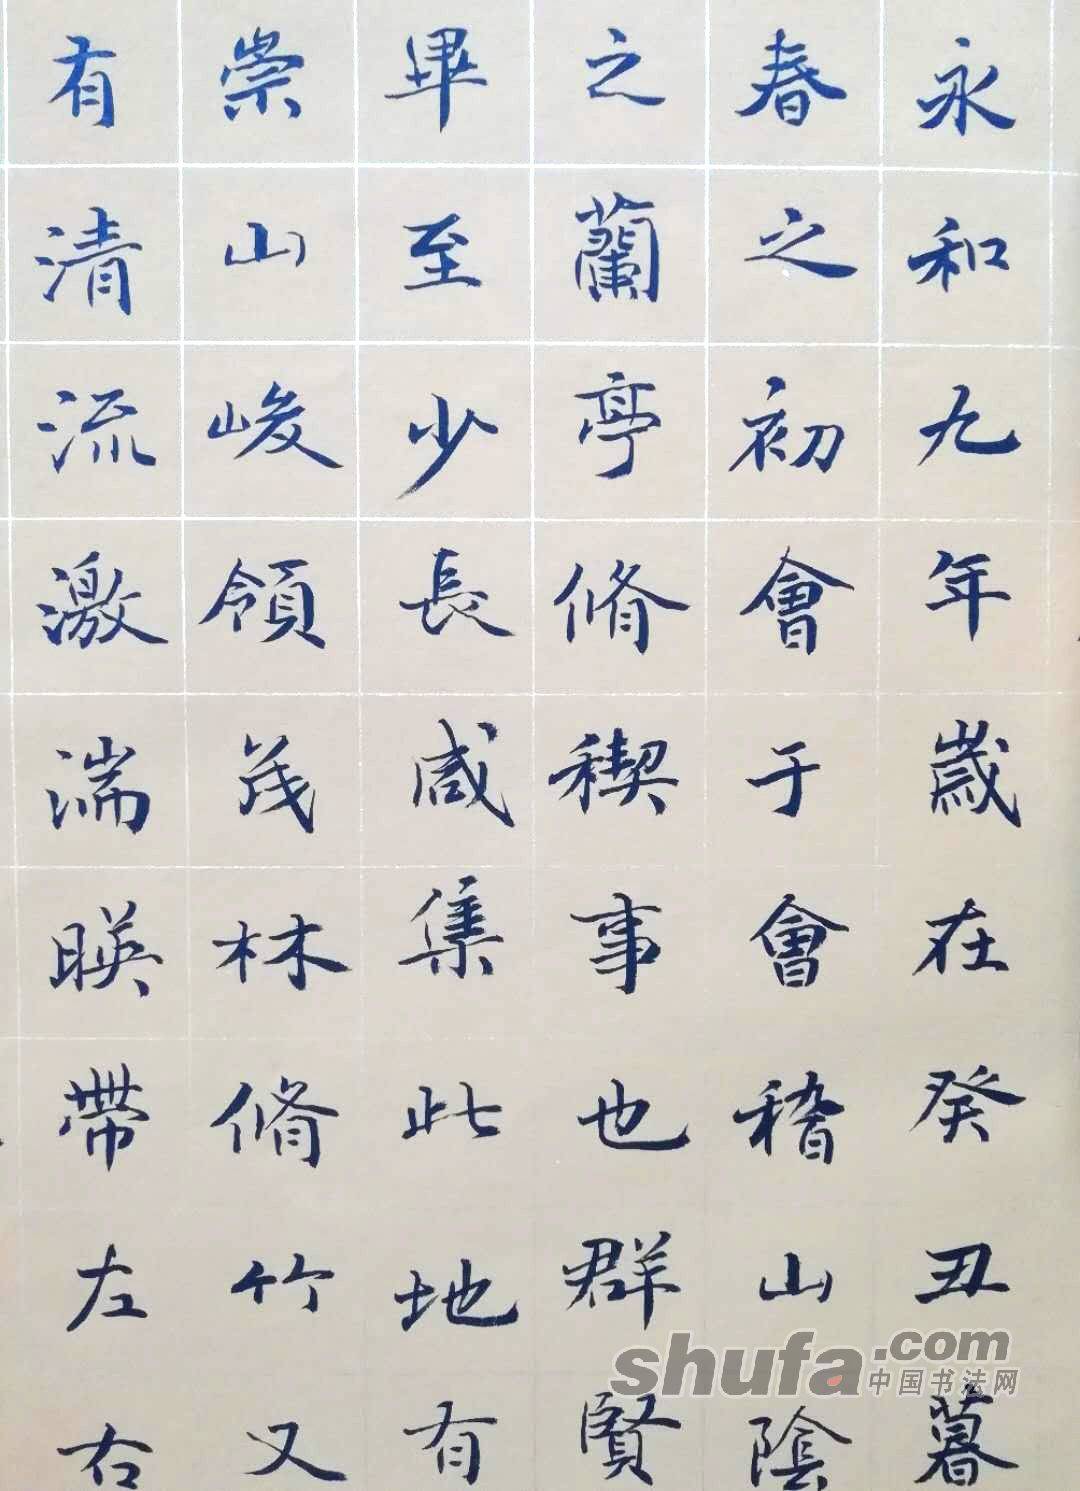 永和九年歲在癸丑暮
春之初會于會稽山陰
之蘭亭脩稧事也群賢
畢至少長咸集此地有
崇山峻領茂林脩竹又
有清流激湍暎帶左右
shufa.com
中国书法网